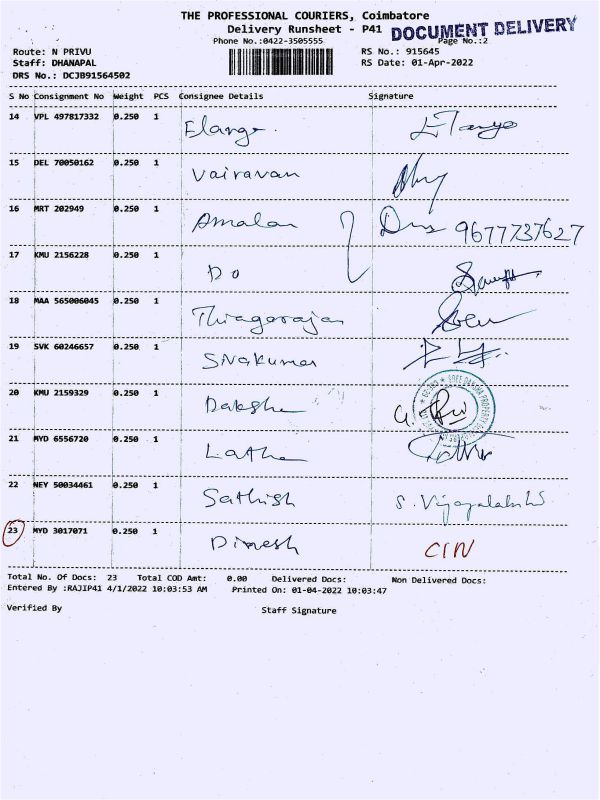 THE PROFESSIONAL COURIERS, Coimbatore
Delivery Runsheet - P41
DOCUMENT DELIVERY
Phone No.:0422-3505555
Page No.:2
Route: N PRIVU
RS No.: 915645
Staff: DHANAPAL
RS Date: 01-Apr-2022
DRS No.: DCJB91564502
S No Consignment No Weight PCS Consignee Details Signature
14 VPL 497817332 0.250 1 Elango
15 DEL 70050162 0.250 1 Vairavan
16 MRT 202949 0.250 1 Amalan 9677737627
17 KMU 2156228 0.250 1 Do
18 MAA 565006045 0.250 1 Thiagarajan
19 SVK 60246657 0.250 1 Sivakumar
20 KMU 2159329 0.250 1 Daksha
21 MYD 6556720 0.250 1 Latha
22 NEY 50034461 0.250 1 Sathish S. Vijayalakshi
23 MYD 3017071 0.250 1 Dinesh CIN
Total No. Of Docs: 23 Total COD Amt: 0.00 Delivered Docs: Non Delivered Docs:
Entered By :RAJIP41 4/1/2022 10:03:53 AM Printed On: 01-04-2022 10:03:47
Verified By Staff Signature